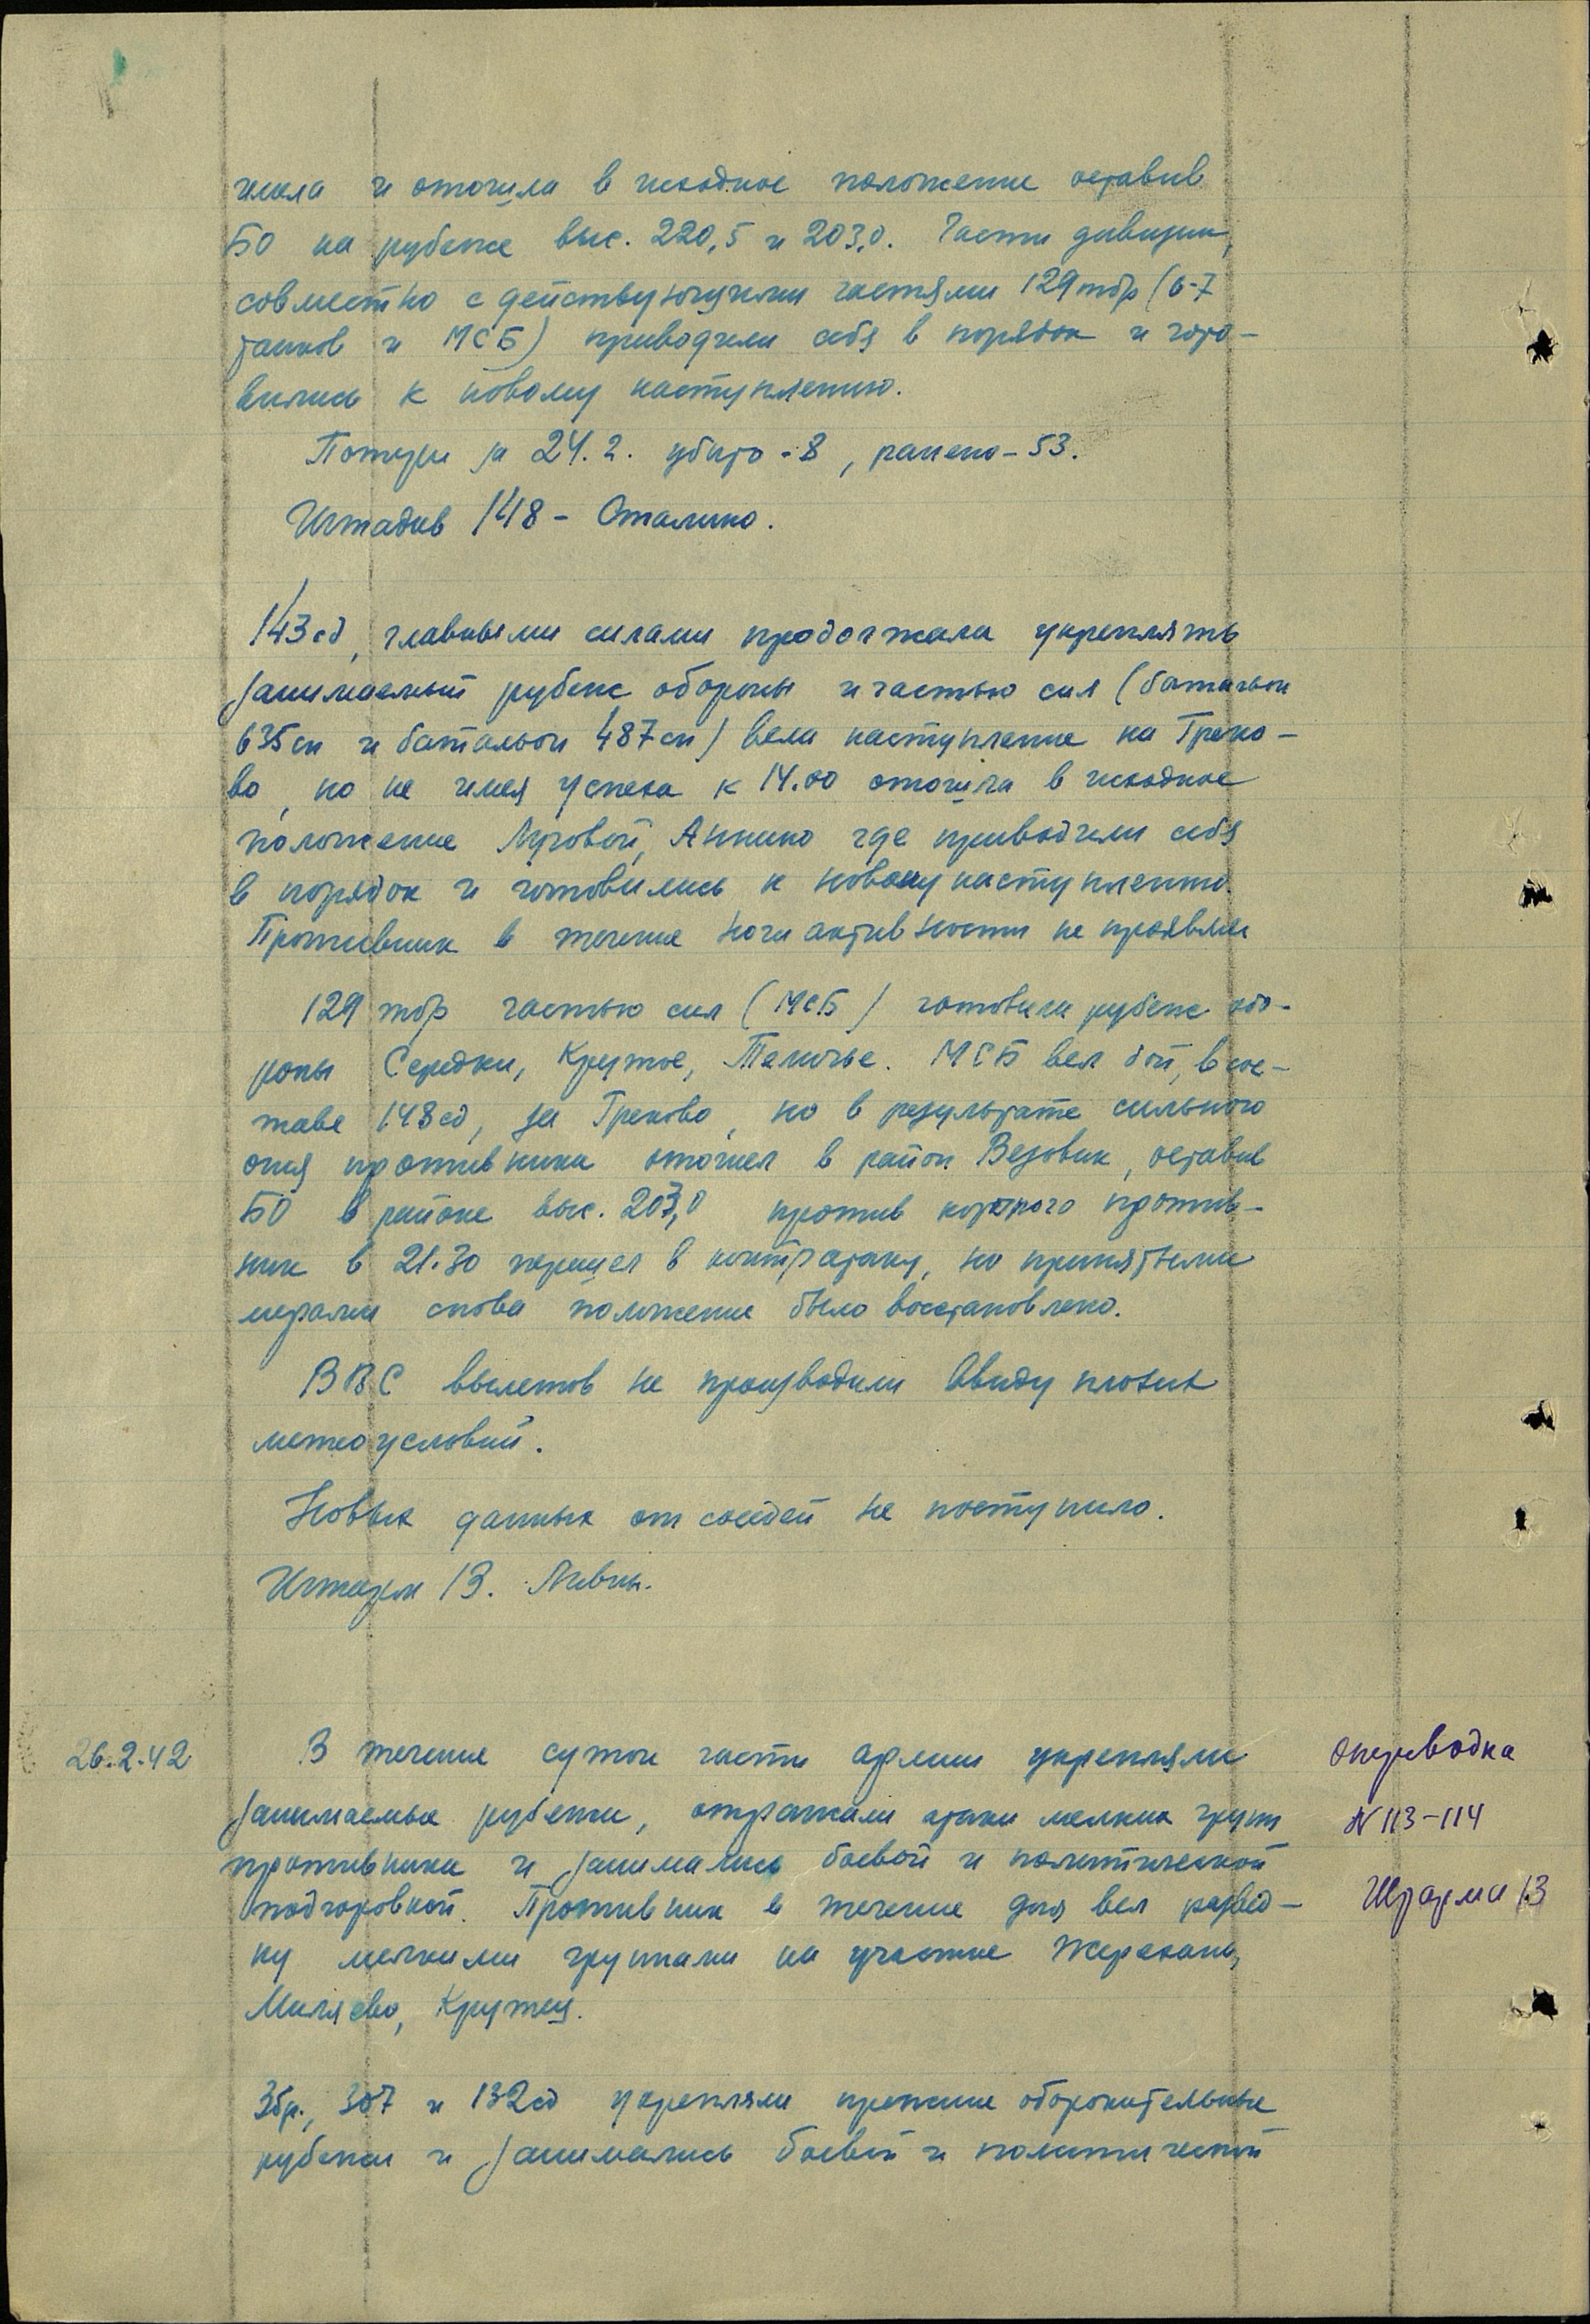 имела и отошла в исходное положение оставив
БО на рубеже выс. 220,5 и 203,0. Части дивизии,
совместно с действующими частями 129 тбр (6-7
танков и МСБ) приводили себя в порядок и гото-
вились к новому наступлению.
Потери за 24.2. убито - 8, ранено - 53.
Штадив 148 - Сталино.
143 сд, главными силами продолжала укреплять
занимаемый рубеж обороны и частью сил (батальон
635 сп и батальон 487 сп) вела наступление на Греко-
во, но не имея успеха к 14.00 отошла в исходное
положение Луговой, Аннино где приводили себя
в порядок и готовились к новому наступлению.
Противник в течение ночи активности не проявлял
129 тбр частью сил (МСБ) готовила рубеж обо-
роны Середки, Крутое, Теличье. МСБ вел бой, в сос-
таве 148 сд, за Греково, но в результате сильного
огня противника отошел в район Вязовик, оставив
БО в районе выс. 203,0 против которого против-
ник в 21.30 перешел в контратаку, но принятыми
мерами снова положение было восстановлено.
ВВС вылетов не производили ввиду плохих
метеоусловий.
Новых данных от соседей не поступило.
Штарм 13. Ливны.
26.2.42
В течение суток части армии укрепляли
занимаемые рубежи, отражали атаки мелких групп
противника и занимались боевой и политической
подготовкой. Противник в течение дня вел развед-
ку мелкими группами на участке Жерехань,
Миляево, Кружки.
опersводка
N 113-114
Штарма 13
307 и 132 сд укрепляли прежние оборонительные
рубежи и занимались боевой и политической